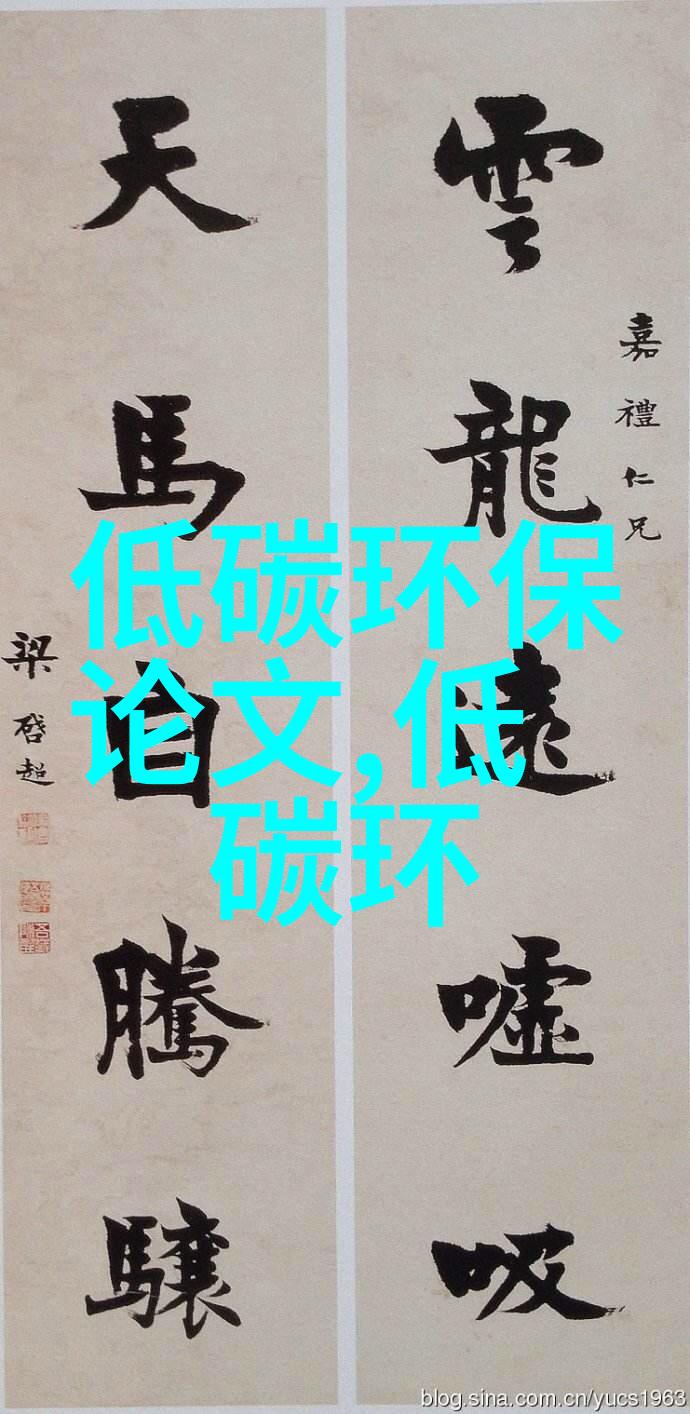 雲龍遠嘘吸
嘉禮仁兄
天馬自騰驤
梁啓超
低碳环保
论文,低
碳环
blog.sina.com.cn/yucs1963